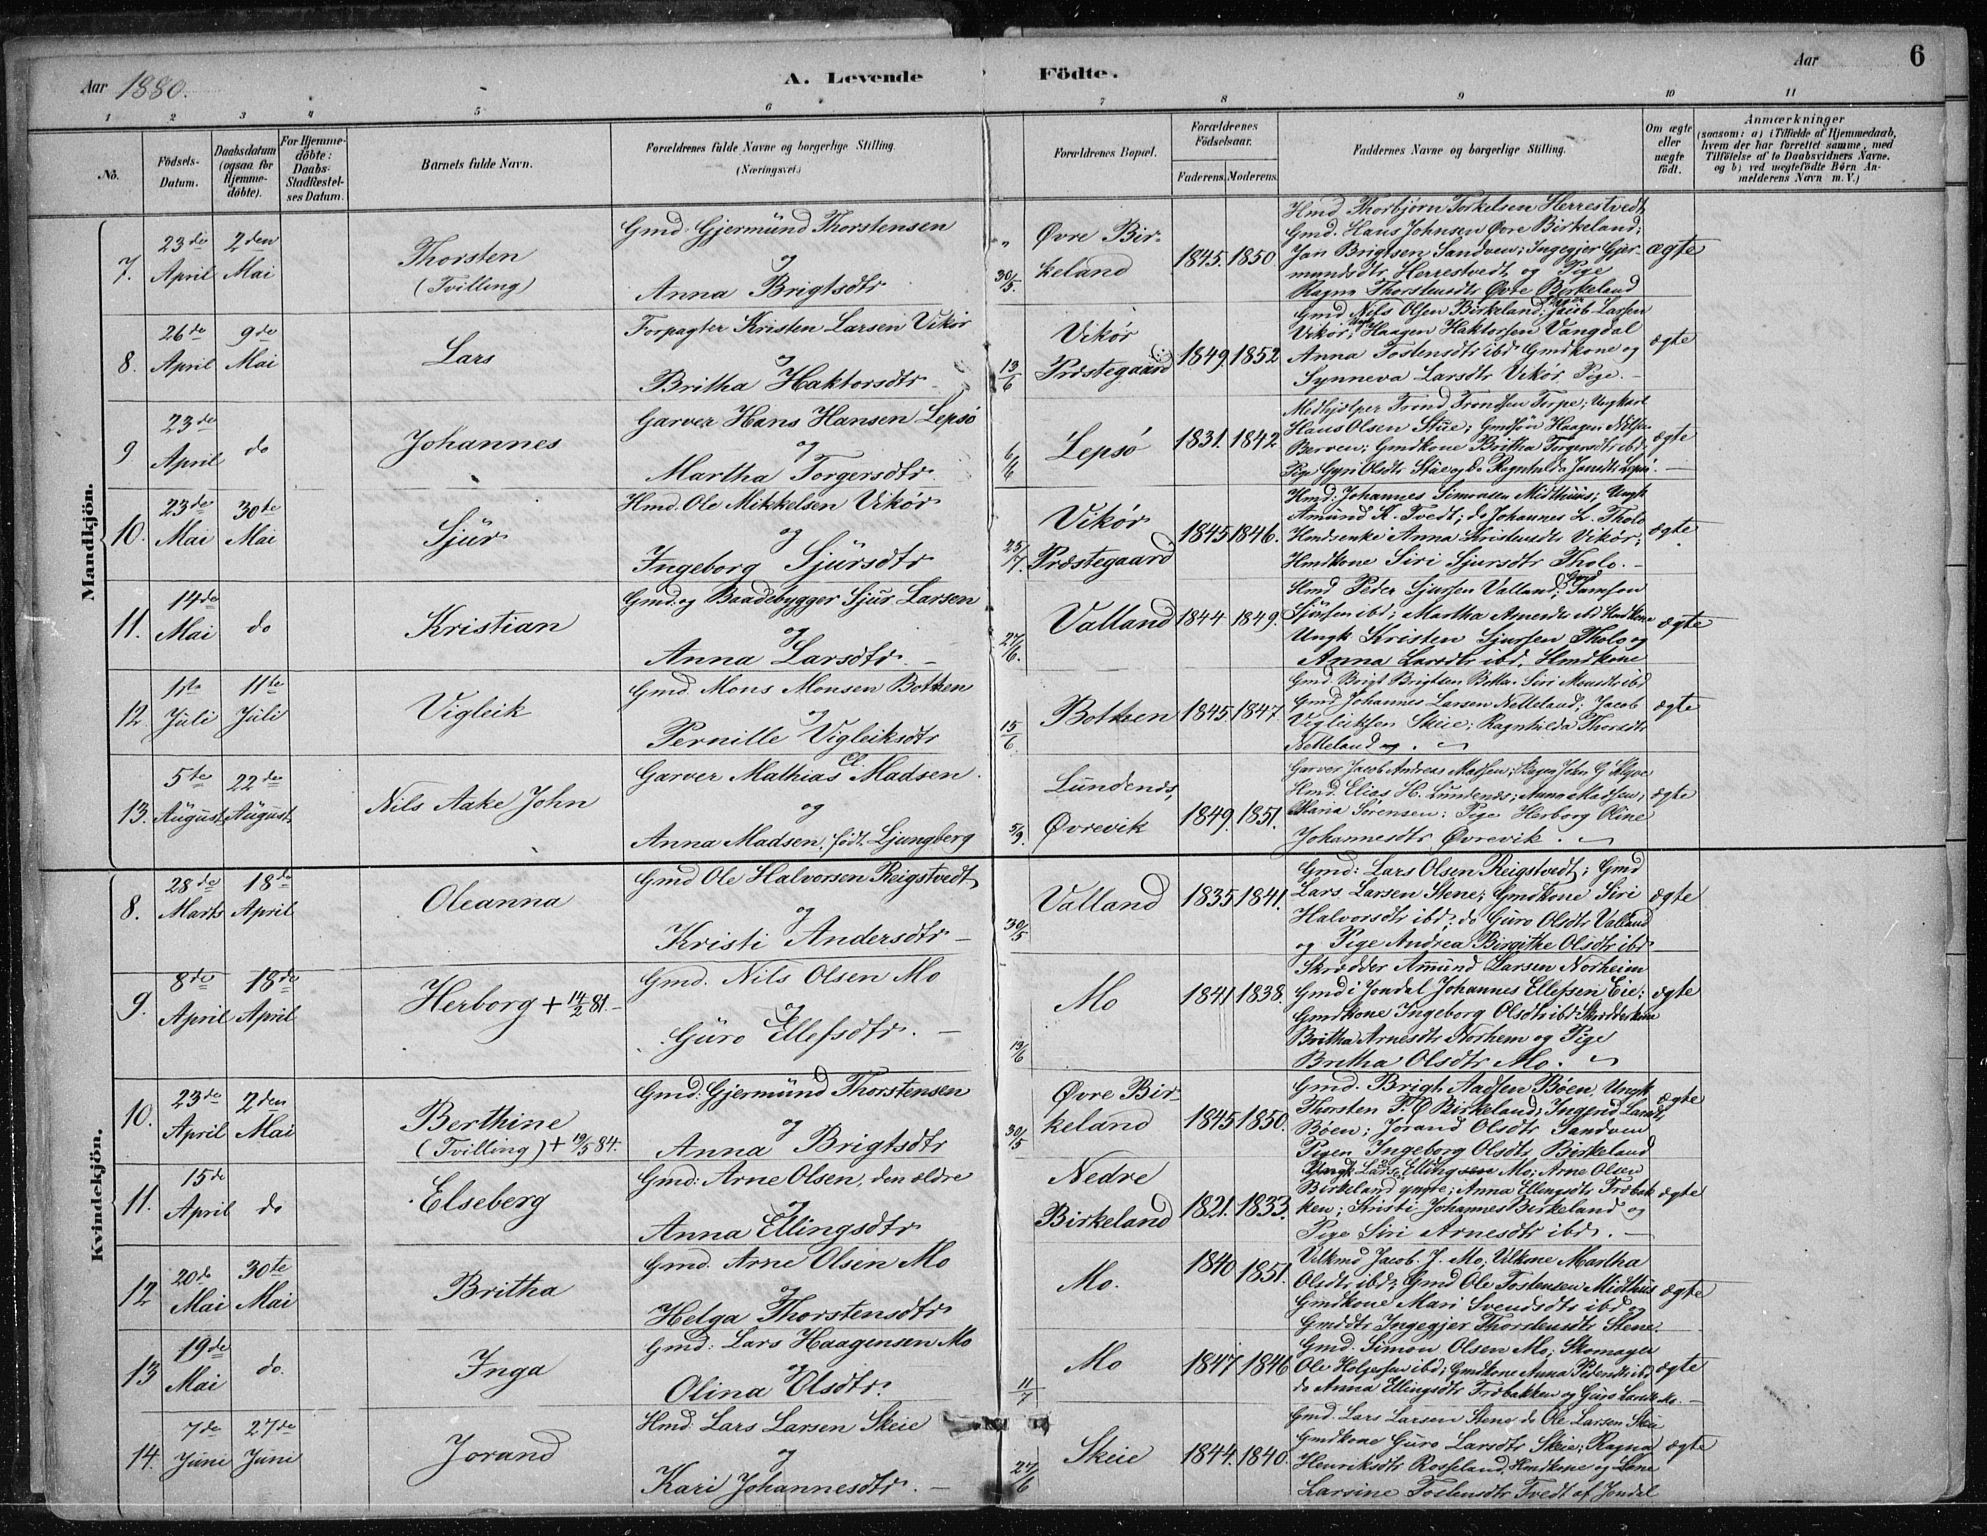 Aar 1880.
A. Levende Födte.
Aar
6
1 2 3 4 5 6 7 8 9 10 11
No.
Födsels-Datum.
Daabsdatum (ogsaa for Hjemme-döbte).
For Hjemme-döbte: Daabs-Stadfæstel-ses Datum.
Barnets fulde Navn.
Forældrenes fulde Navne og borgerlige Stilling.
(Næringsvei.)
Forældrenes Bopæl.
Forældrenes Födselsaar.
Faderens. Moderens.
Faddernes Navne og borgerlige Stilling.
Om ægte eller uægte født.
Anmærkninger
(saasom: a) i Tilfælde af Hjemmedaab,
hvem der har forrettet samme, med
Tilföielse af to Daabsvidners Navne,
og b) ved uægtefödte Börn An-
melderens Navn m. V.)
Mandkjön.
7. 23de April 2den Mai
Thorsten
(Tvilling)
Gmd. Gjermünd Thorstensen
og
Anna Brigtsdtr
30/5. Øvre Bir-
keland
1845. 1850
Hmd. Thorbjørn Torkelsen Herrestvedt
Gmd. Hans Johnsen Øvre Birkeland;
Jan Brigtsen Sandven; Ingegjer Gjer-
mundsdtr Herrestvedt og Pige
Ragna Thorstensdtr Øvre Birkeland
ægte
8. 26de April 9de Mai
Lars
Forpagter Kristen Larsen Vikör
og
Britha Haktorsdtr
13/6 Vikör
Præstegaard
1849. 1852
Gmd Nils Olsen Birkeland; Jacob Larsen
Vikör; Haagen Haktorsen Vangdal
Anna Tostensdtr ibd Gmdkone og
Synneva Larsdtr Vikör Pige.
ægte
9 23de April do
Johannes
Garver Hans Hansen Lepsö
og
Martha Torgersdtr.
6/6 Lepsö
1831. 1842
Medhjelper Trond Trondsen Torpe; Ungkarl
Hans Olsen Stüe; Gmdsön Haagen Nilsen
Berven; Gmdkone Britha Torgersdtr ibd
Pige Gyri Olsdtr Stüe og do Ragnhilda Lepsö.
ægte
10. 23de Mai 30te Mai
Sjür
Hmd. Ole Mikkelsen Vikör
og
Ingeborg Sjürsdtr
25/7. Vikör
Præstegaard
1845 1846.
Hmd: Johannes Simonsen Midthüüs; Ungk
Amünd K. Tvedt; do Johannes L. Tholo
Hmdsenke Anna Kristensdtr Vikör;
Hmdkone Siri Sjursdtr Tholo.
ægte
11. 14de Mai do
Kristian
Gmd. og Baadebygger Sjur Larsen
og
Anna Larsdtr.
27/6. Valland
1844 1849.
Hmd Peder Sjursen Valland, Gmd Samson
Sjürsen ibd; Martha ibd Hmdkone
Ungk Kristen Sjursen Tholo og
Anna Larsdtr ibd. Hmdkone
ægte
12. 11te Juli 11te Juli
Vigleik
Gmd. Mons Monsen Bothen
og
Pernille Vigleiksdtr
15/6 Bothen
1845 1847.
Gmd. Brigt Brigtsen Bothen Siri Monsdtr ibd
Gmd Johannes Larsen Netteland; Jacob
Vigleiksen Skeie; Ragnhilda Thorsdtr
Netteland
ægte
13. 5te August 22de August
Nils Aake John
Garver Mathias Cl. Madsen.
og
Anna Madsen, född. Ljungberg
5/9. Lundends,
Øvrevik
1849. 1851.
Garver Jacob Andreas Madsen; John G
Hmd. Elias H. Lundends; Anna Madsen,
Maria Sörensen; Pige Herborg Oline
Johannesdtr Øvrevik.
ægte
Kvindekjön.
8. 28de Marts 18de April
Oleanna
Gmd Ole Halvorsen Reigstvedt
og
Kristi Andersdtr
30/5 Valland
1835 1841.
Gmd: Lars Olsen Reigstvedt; Gmd
Lars Larsen Stene; Gmdkone Siri
Halvorsdtr ibd; do Guro Olsdtr Valland
og Pige Andrea Birgithe Olsdtr ibd
ægte
9. 8de April 18de April
Herborg + 14/2 81.
Gmd. Nils Olsen Mo
og
Güro Ellefsdtr.
13/6 Mo
1841 1838.
Skrædder Amund Larsen Norheim
Gmd i Jondal Johannes Ellefsen Eie;
Gmdkone Ingeborg Olsdtr ibd Skrædderkone
Britha Arnesdtr Norhem og Pige
Britha Olsdtr Mo.
ægte
10. 23de April 2den Mai
Berthine
(Tvilling) + 19/5 84.
Gmd: Gjermünd Thorstensen
og
Anna Brigtsdtr
30/5 Øvre Bir-
keland
1845 1850.
Gmd. Brigt. Aadsen Böen. Ungk
Thorsten T. Ø Birkeland; Ingerid Larsdtr
Böen; Jorand Olsdtr Sandven
Pigen Ingeborg Olsdtr Birkeland
ægte
11. 15de April do
Elseberg
Gmd: Arne Olsen, den ældre
og
Anna Ellingsdtr
Nedre
Birkeland
1821. 1833.
Ungk Lars Ellingsen Mo; Arne Olsen
Birkeland yngre; Anna Ellingsdtr Træbak
ken; Kristi Johannes Birkeland og
Pige Siri Arnesdtr ibd.
ægte
12 20de Mai 30te Mai
Britha
Gmd. Arne Olsen Mo
og
Helga Thorstensdtr
Mo.
1840 1851.
Vilkmd Jacob J. Mo; Vilkone Martha
Olsdtr ibd; Gmd Ole Tostensen Midthus
Gmdkone Mari Svendsdtr ibd og
Gmddtr Ingegjer Thorstensdtr Stene.
ægte
13 19de Mai do.
Inga
Gmd: Lars Haagensen Mo
og
Olina Olsdtr.
11/7 Mo
1847 1846
Gmd. Simon Olsen Mo; Skomager
Ole Holgersen ibd; Gmdkone Anna Pedersdtr ibd
do Anna Ellingsdtr Træbakken og Guro Mo.
ægte
14. 7de Juni 27de Juni
Jorand
Hmd: Lars Larsen Skeie
og
Kari Johannesdtr.
27/6 Skeie
1844. 1840.
Gmd. Lars Larsen Stene do Ole Larsen Skeie
Gmdkone Guro Larsdtr Skeie; Ragna
Henriksdtr Rosseland, Hmdkone og
Larsine Tostensdtr Tvedt af Jondal
ægte